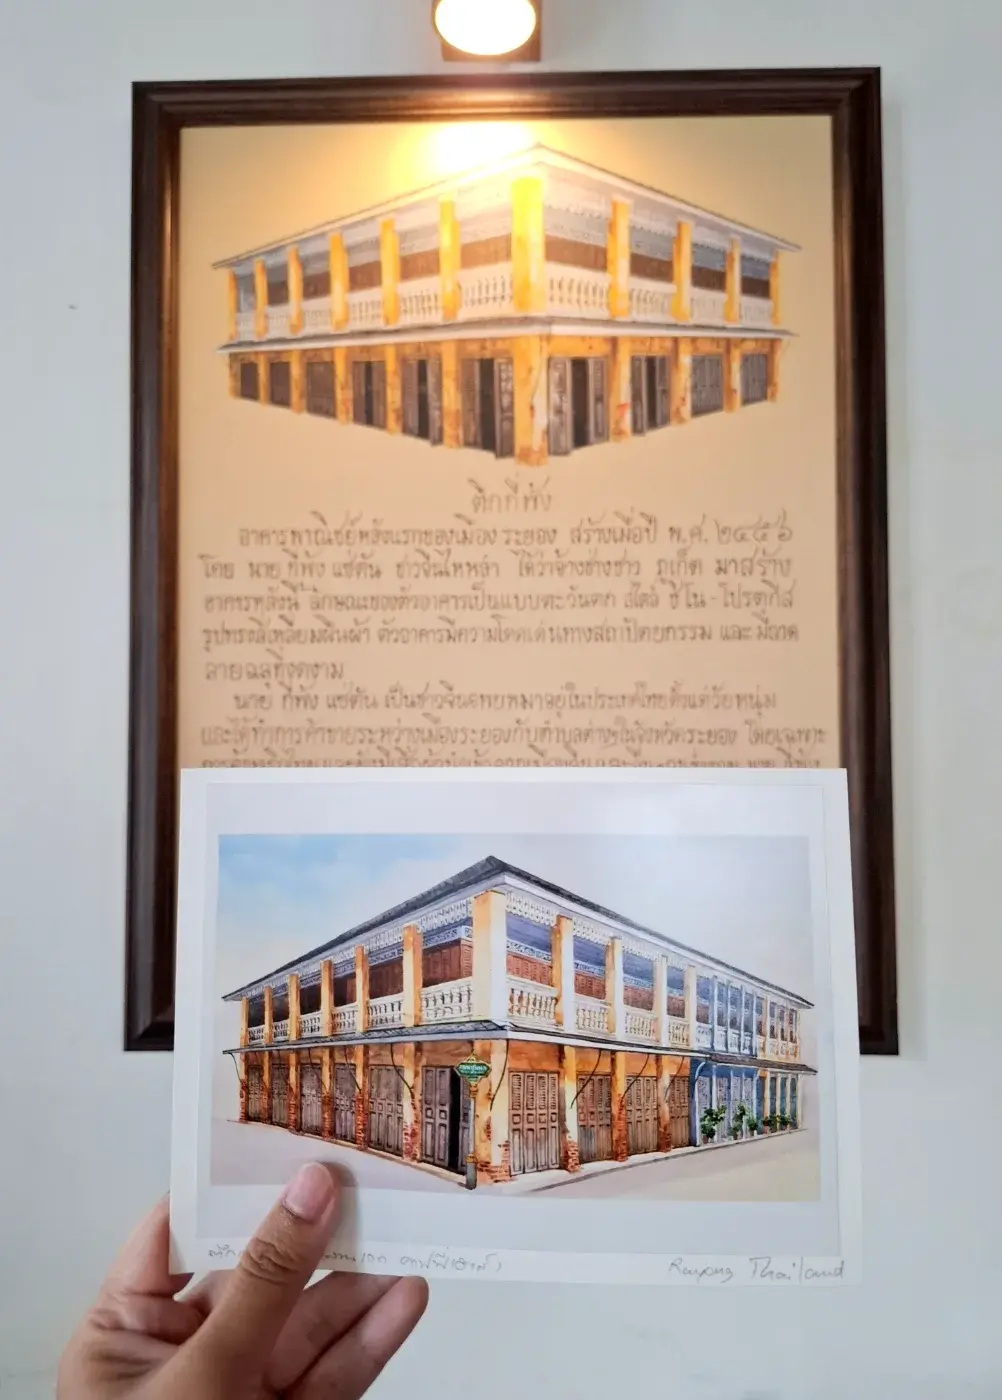 ตึกกี่พ้ง
อาคารพาณิชย์หลังแรกของเมือง ระยอง สร้างเมื่อปี พ.ศ. ๒๔๕๖
โดย นาย กี่พ้ง แซ่ตัน ชาวจีนไหหลำ ได้ว่าจ้างช่างชาว ภูเก็ต มาสร้าง
อาคารหลังนี้ ลักษณะของตัวอาคารเป็นแบบตะวันตก สไตล์ ชิโน-โปรตุกีส
รูปทรงสี่เหลี่ยมผืนผ้า ตัวอาคารมีความโดดเด่นทางสถาปัตยกรรม และ มีลวด
ลายฉลุที่งดงาม
นาย กี่พ้ง แซ่ตัน เป็นชาวจีนอพยพมาอยู่ในประเทศไทยตั้งแต่วัยหนุ่ม
และได้ทำการค้าขายระหว่างเมืองระยองกับตำบลต่างๆในจังหวัดระยอง โดยเฉพาะ
Rayong Thailand